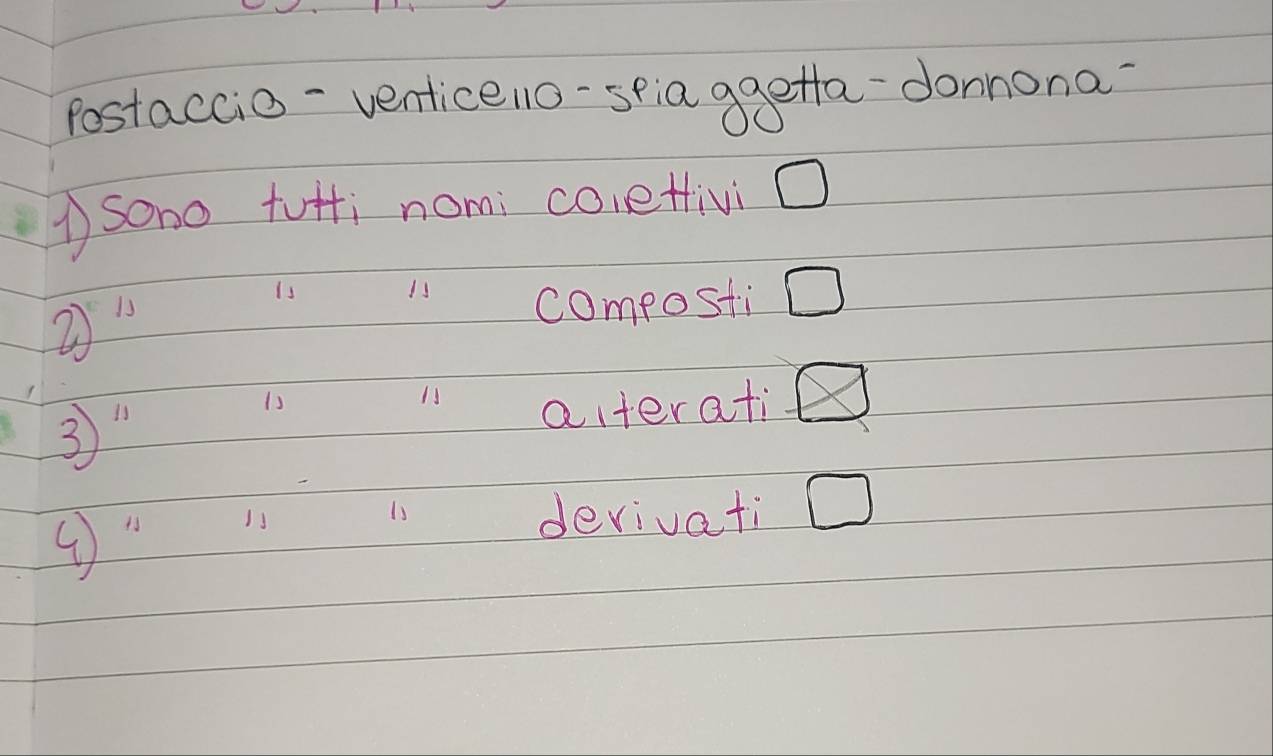 Postaccio - venticello - spiaggetta - donnona -
1) Sono tutti nomi colettivi
2) " " " composti
3) " " " alterati
4) " " " derivati